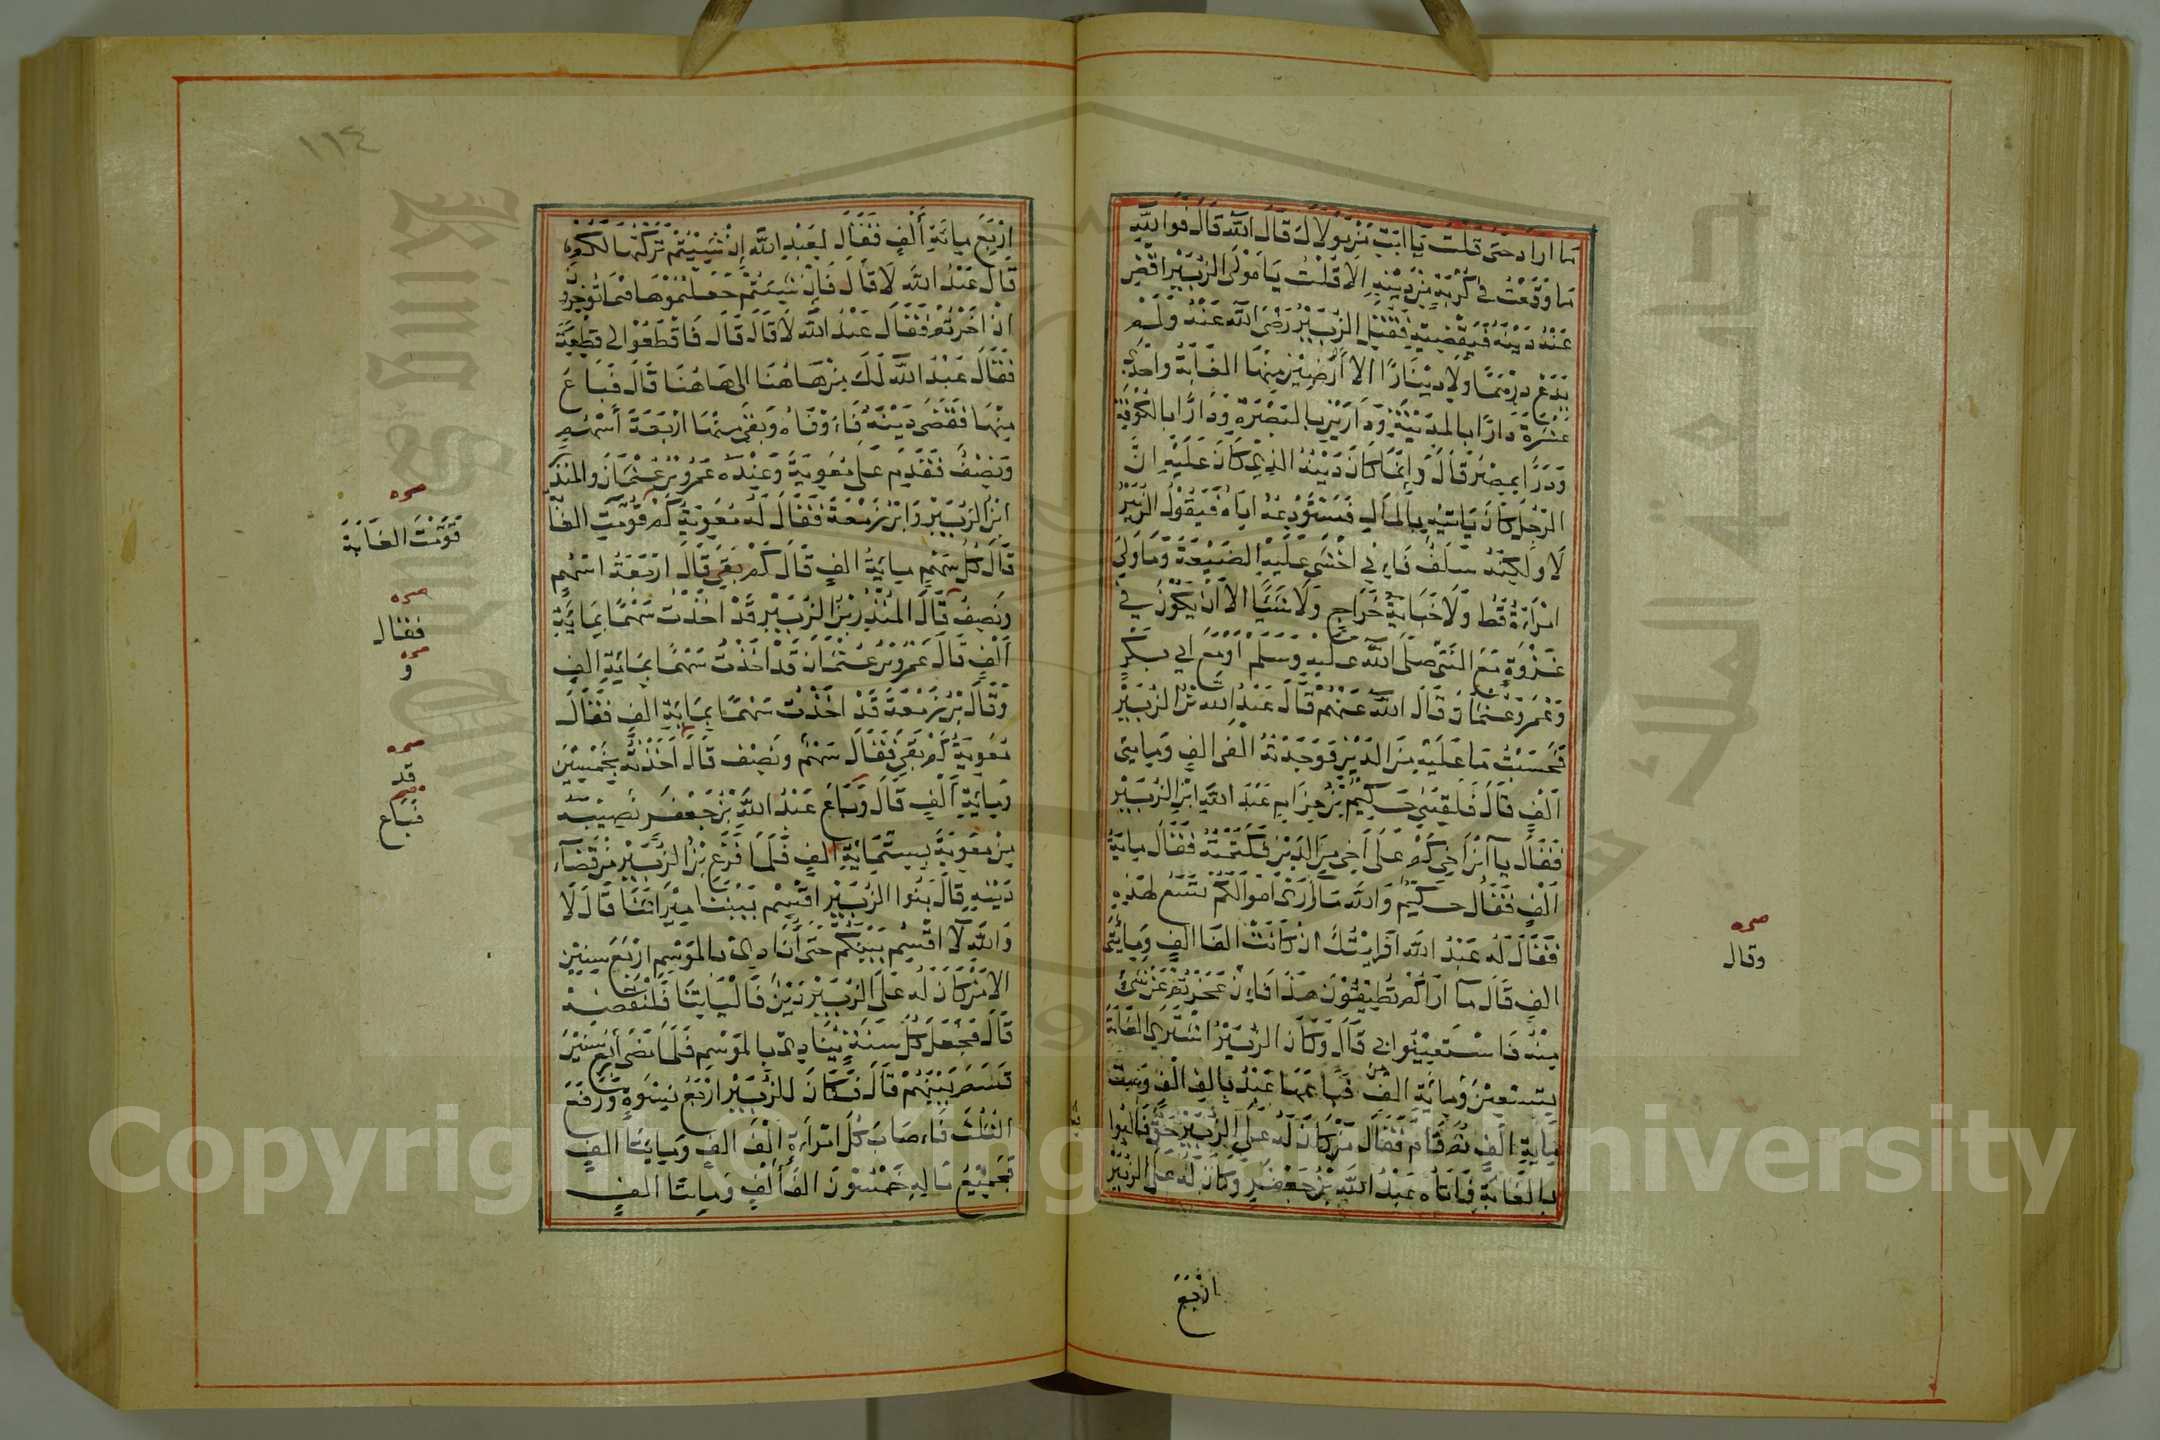 ما اراد حتى قلت يا ابت من مولاك قال الله قال فوالله
ما وقعت في كربة من دينه الا قلت يا مولى الزبير اقض
عنه دينه فيقضيه فقتل الزبير رضى الله عنه ولم
يدع درهما ولا دينارا الا أرضين منها الغابة واحدى
عشرة دارا بالمدينة ودارين بالبصرة ودارا بالكوفة
ودارا بمصر قال وانما كان دينه الذى كان عليه ان
الرجل كان ياتيه بالمال فيستودعه اياه فيقول الزبير
لا ولكنه سلف فاني اخشى عليه الضيعة وما ولي
امارة قط ولا جباية خراج ولا شيا الا ان يكون في
غزوة مع النبي صلى الله عليه وسلم او مع ابي بكر
وعمر وعثمان رضي الله عنهم قال عبد الله بن الزبير
فحسبت ما عليه من الدين فوجدته الفي الف ومايتي
الف قال فلقيني حكيم بن حزام عبد الله ابن الزبير
فقال يا ابن اخي كم على اخي من الدين فكتمته فقال مايه
الف فقال حكيم والله ما ارى اموالكم تسع لهذه
فقال له عبد الله افرايتك ان كانت الفا الف ومايتى
الف قال ما اراكم تطيقون هذا فان عجزتم عن شئ
منه فاستعينوا بي قال وكان الزبير اشترى الغابة
بسبعين ومائة الف فباعها عبد بالف الف وست
ماية الف ثم قام فقال من كان له على الزبير حق فاليوا
بالغابة فاتاه عبد الله بن جعفر وكان له على الزبير
اربع
صحـ
وقال
١١٤
اربع ماية ألف فقال لعبد الله إن شيتم تركتها لكم
قال عبد الله لا قال فإن شيتم جعلتموها فيما توخرون
ان اخرتم فقال عبد الله لا قال قال فاقطعوا لي قطعة
فقال عبد الله لك من هاهنا الى هاهنا قال فباع
منها فقضى دينه فاوفاه وبقى منها اربعة أسهم
ونصف فقدم على معوية وعنده عمرو بن عثمان والمنذر
ابن الزبير وابن زمعة فقال له معوية كم قومت الغابة
قال كل سهم ماية الف قال كم بقى قال اربعة اسهم
ونصف قال المنذر بن الزبير قد اخذت سهما بماية
ألف قال عمرو بن عثمان قد اخذت سهما بماية الف
وقال بن زمعة قد اخذت سهما بماية الف فقال
معوية كم بقي فقال سهم ونصف قال اخذته بخمسين
وماية الف قال وباع عبد الله بن جعفر نصيبه
من معوية بستماية الف فلما فرغ بن الزبير من قضاء
دينه قال بنوا الزبير اقسم بيننا ميراثنا قال لا
والله لا اقسم بينكم حتى أنادى بالموسم اربع سنين
الا من كان له على الزبير دين فالياتنا فلنقضه
قال فجعل كل سنة ينادى بالموسم فلما مضى أربع سنين
قسم بينهم قال فكان للزبير اربع نسوة ورفع
الثلث فاصاب كل امراة الف الف ومايتا الف
فجميع ماله خمسون الف ألف ومايتا الف
صحـ
قومت الغابة
صحـ
فقال
صحـ
و
صحـ
قد
صحـ
فباع
Copyright © King Saud University